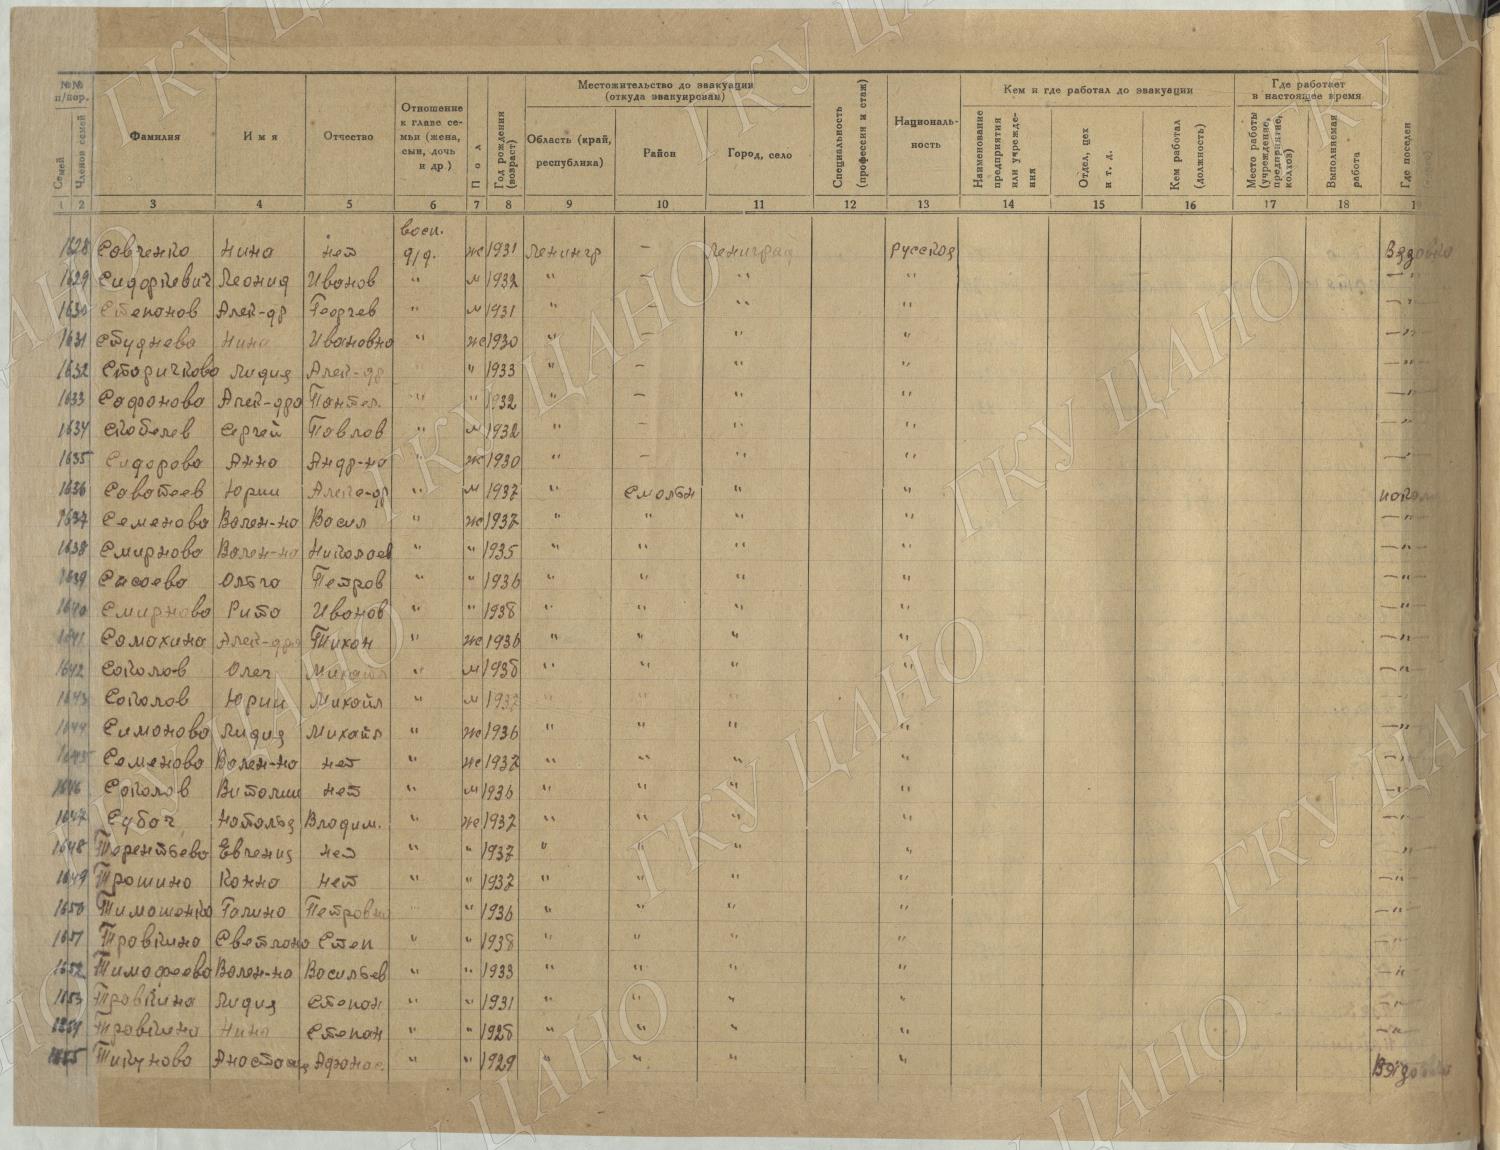 №№ п/пор.
Семей
Членов семей
Фамилия
Имя
Отчество
Отношение к главе семьи (жена, сын, дочь и др.)
Пол
Год рождения (возраст)
Местожительство до эвакуации (откуда эвакуирован)
Область (край, республика)
Район
Город, село
Специальность (профессия и стаж)
Националь-ность
Кем и где работал до эвакуации
Наименование предприятия или учрежде-ния
Отдел, цех и т. д.
Кем работал (должность)
Где работает в настоящее время
Место работы (учреждение, предприятие, колхоз)
Выполняемая работа
Где поселен
1 2 3 4 5 6 7 8 9 10 11 12 13 14 15 16 17 18
1628 Савченко Нина нет восп. д/д. ж 1931 Ленингр – Ленинград русская
1629 Сидоркевич Леонид Иванов " м 1932 " – " " —"
1630 Степанов Алек-др Георгев " м 1931 " – " " —"
1631 Студнева Нина Ивановна " ж 1930 " – " " —"
1632 Старичкова Лидия Алек-др " " 1933 " – " " —"
1633 Сафонова Алек-дра Пантел. " " 1932 " – " " —"
1634 Скобелев Сергей Павлов " м 1932 " – " " —"
1635 Сидорова Анна Андр-на " ж 1930 " – " " —"
1636 Саватеев Юрий Алекс-др " м 1937 " Смольн " "
1637 Семенова Вален-на Васил " ж 1937 " " " " —"
1638 Смирнова Вален-на Николаев " " 1935 " " " " —"
1639 Сысоева Ольга Петров " " 1936 " " " " —"
1640 Смирнова Рита Иванов " " 1938 " " " " —"
1641 Самохина Алек-дра Тихон " ж 1936 " " " " —"
1642 Соколов Олег Михайл " м 1938 " " " " —"
1643 Соколов Юрий Михайл м 1937
1644 Симонова Лидия Михайл " ж 1936 " " " " —"
1645 Семенова Вален-на нет " ж 1937 " " " " —"
1646 Соколов Виталий нет " м 1936 " " " " —"
1647 Субоч Наталья Владим. " ж 1937 " " " " —"
1648 Терентьева Евгения нет " " 1937 " " " " —"
1649 Трошина Жанна нет " " 1937 " " " " —"
1650 Тимошенко Галина Петровна " " 1936 " " " " —"
1651 Травкина Светлана Степ " " 1938 " " " " —"
1652 Тимофеева Вален-на Васильев " " 1933 " " " " —"
1653 Травкина Лидия Степан " " 1931 " " " " —"
1654 Травкина Нина Степан " " 1928 " " " " —"
1655 Тикунова Анастасия Афанас. " " 1929 " " " "
ГКУ ЦАНО